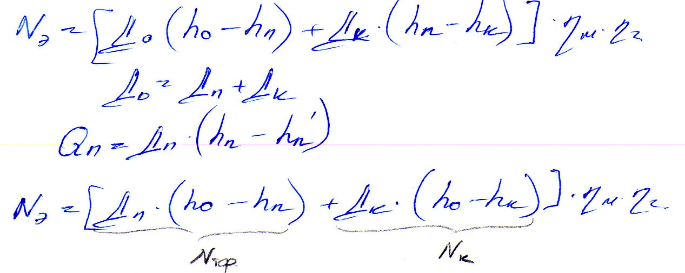 Nэ = [Д₀ (h₀ − hп) + Дк · (hп − hк)] · ηм · ηг
Д₀ = Дп + Дк
Qп = Дп · (hп − hп′)
Nэ = [Дп · (h₀ − hп) + Дк · (h₀ − hк)] · ηм · ηг
Nтф Nк